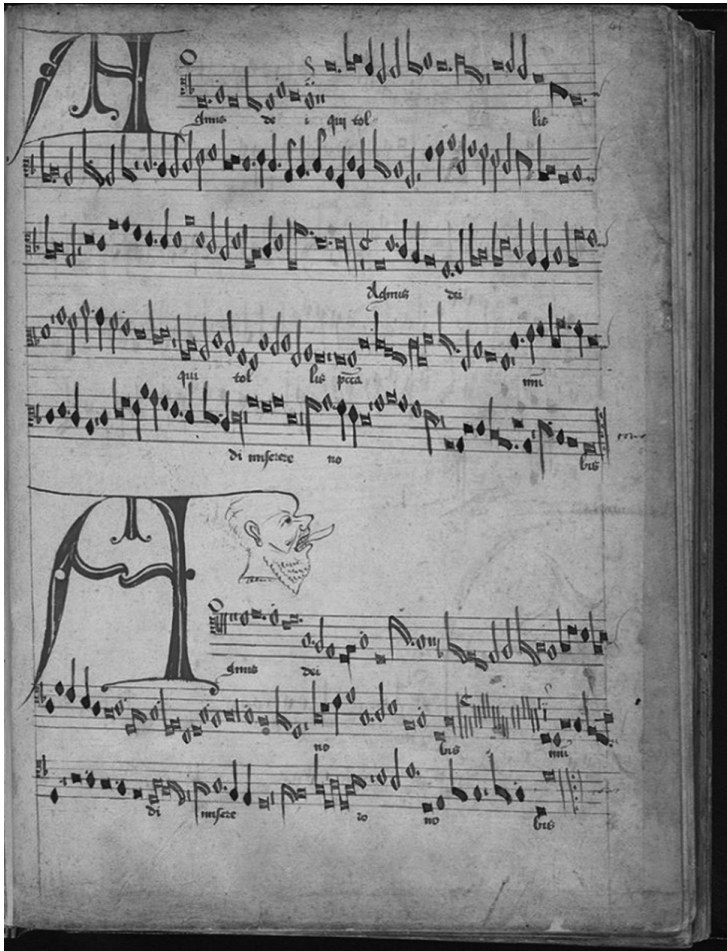 A gnus de i qui tol lis
Agnus dei
qui tol lis pcca mu
di miserere no bis
A gnus dei
no bis mu
di misere re no bis